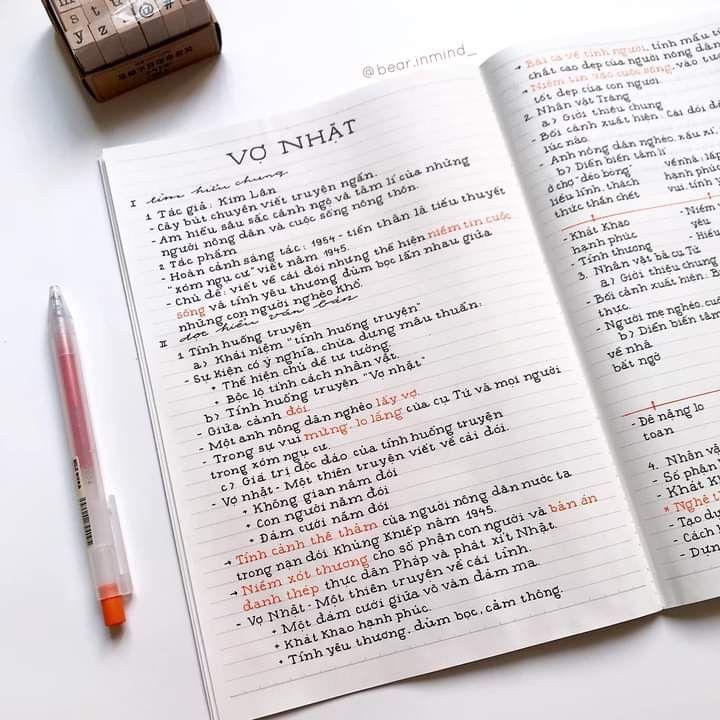 m s t u
y z . @ #
@bear.inmind_
VỢ NHẶT
I tìm hiểu chung
1 Tác giả: Kim Lân
- Cây bút chuyên viết truyện ngắn.
- Am hiểu sâu sắc cảnh ngộ và tâm lí của những
người nông dân và cuộc sống nông thôn.
2 Tác phẩm
- Hoàn cảnh sáng tác: 1954 - tiền thân là tiểu thuyết
"xóm ngụ cư" viết năm 1945.
- Chủ đề: viết về cái đói nhưng thể hiện niềm tin cuộc
sống và tình yêu thương đùm bọc lẫn nhau giữa
những con người nghèo khổ.
II đọc hiểu văn bản
1 Tình huống truyện
a) Khái niệm "tình huống truyện"
- Sự kiện có ý nghĩa, chứa đựng mâu thuẫn:
• Thể hiện chủ đề tư tưởng.
• Bộc lộ tính cách nhân vật.
b) Tình huống truyện "Vợ nhặt"
- Giữa cảnh đói.
- Một anh nông dân nghèo lấy vợ.
- Trong sự vui mừng, lo lắng của cụ Tứ và mọi người
trong xóm ngụ cư.
c) Giá trị độc đáo của tình huống truyện
- Vợ nhặt - Một thiên truyện viết về cái đói.
• Không gian năm đói
• Con người năm đói
• Đám cưới năm đói
→ Tình cảnh thê thảm của người nông dân nước ta
trong nạn đói khủng khiếp năm 1945.
→ Niềm xót thương cho số phận con người và bản án
đanh thép thực dân Pháp và phát xít Nhật.
- Vợ Nhặt - Một thiên truyện về cái tình.
• Một đám cưới giữa vô vàn đám ma.
• Khát khao hạnh phúc.
• Tình yêu thương, đùm bọc, cảm thông.
→ Bài ca về tình người, tính mẫu
chất cao đẹp của người nông dân
→ Niềm tin vào cuộc sống, vào
tốt đẹp của con người
2. Nhân vật Tràng
a) Giới thiệu chung
- Bối cảnh xuất hiện: Cái đói
lúc nào
- Anh nông dân nghèo, xấu xí,
b) Diễn biến tâm lí
ở chợ "dèo bòng" về nhà, lập
liều lĩnh, thách hạnh phúc
thức thần chết vui, tình
- Khát khao - Niềm
hạnh phúc yêu
- Tình thương - Hiếu
3. Nhân vật bà cụ Tứ
a) Giới thiệu chung
- Bối cảnh xuất hiện: B
thực.
- Người mẹ nghèo, cu
b) Diễn biến tâm
về nhà
bất ngờ
- Dễ nâng lo
toan
4. Nhân vậ
- Số phận
- Khát kh
* Nghệ t
- Tạo dự
- Cách
- Dựn